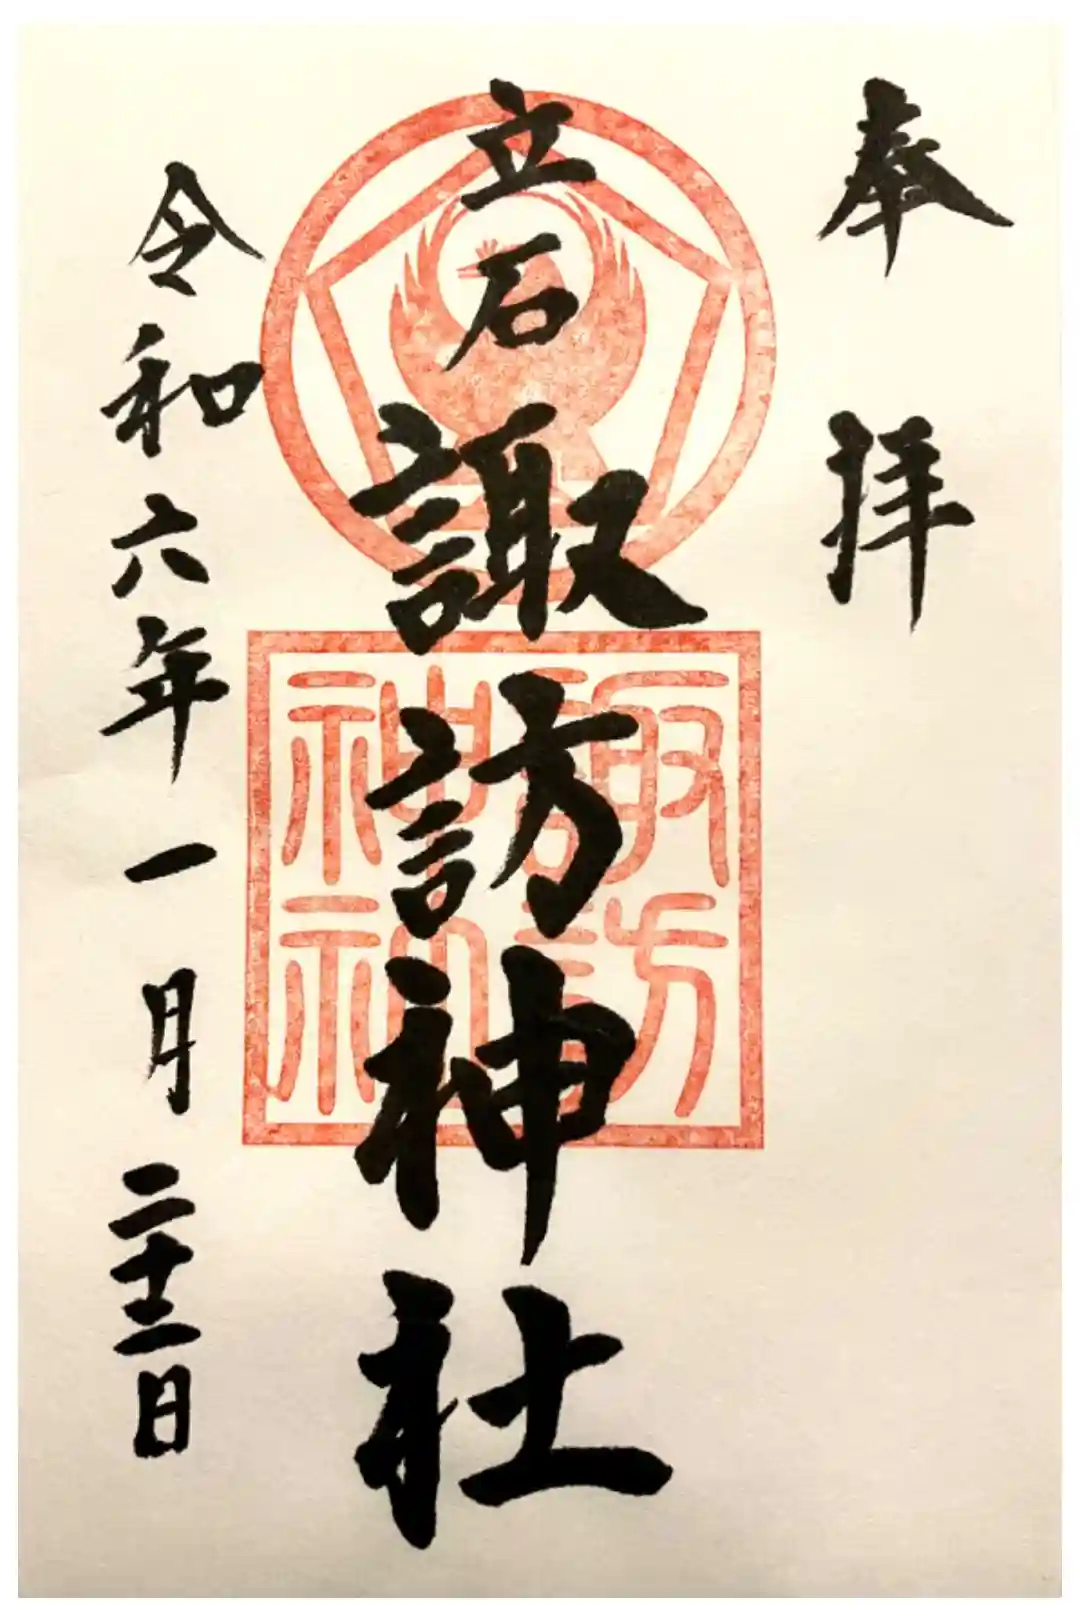 奉拝
立石
諏訪神社
諏訪
神社
令和六年一月二十二日